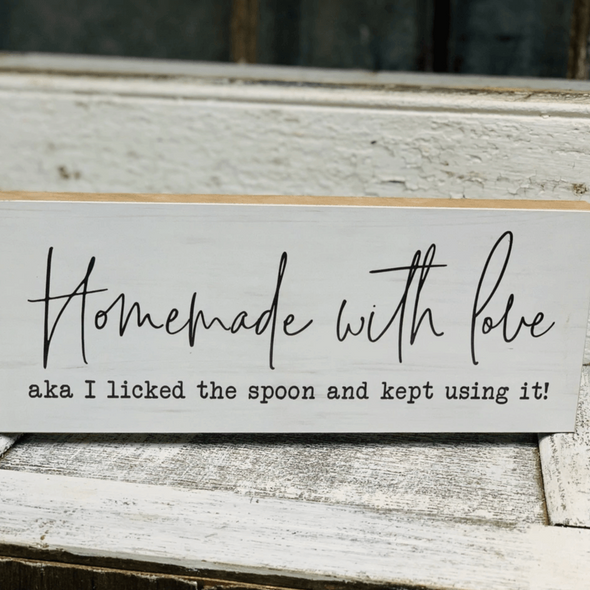 Homemade with love
aka I licked the spoon and kept using it!